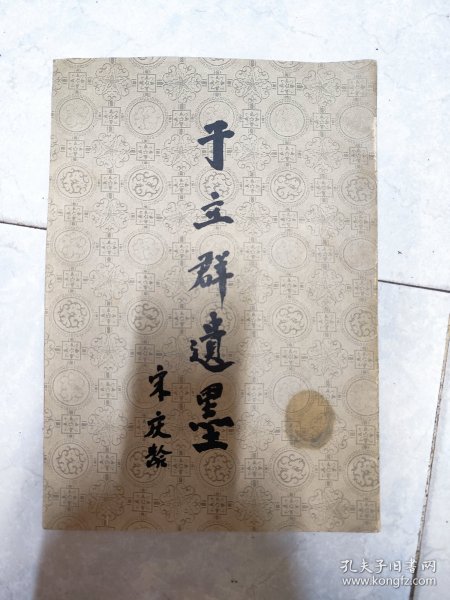 于立群遺墨
宋庆龄
孔夫子旧书网
www.kongfz.com